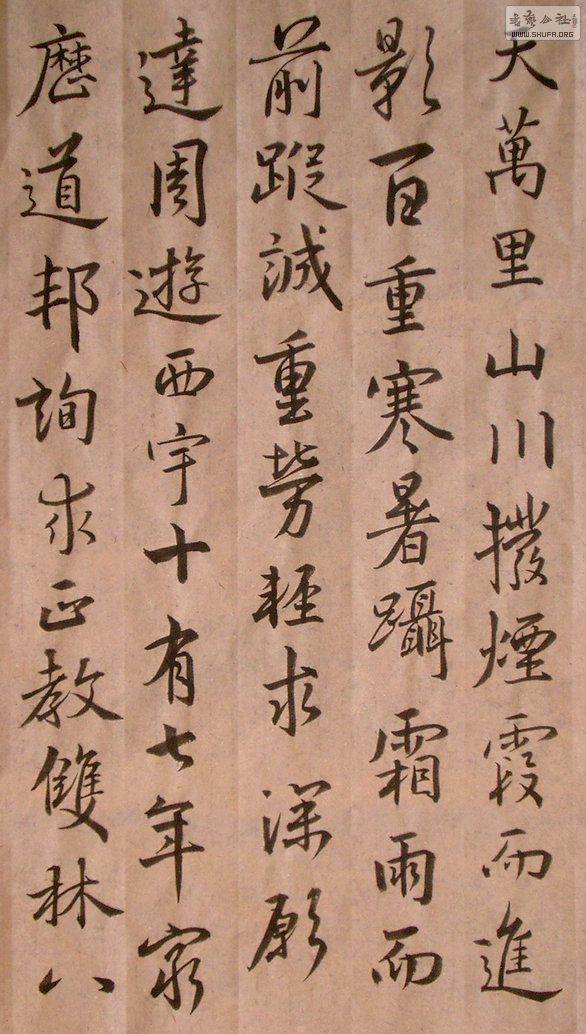 書藝公社
WWW.SHUFA.ORG
天萬里山川撥煙霞而進
影百重寒暑躡霜雨而
前蹤誠重勞輕求深願
達周遊西宇十有七年窮
歷道邦詢求正教雙林八